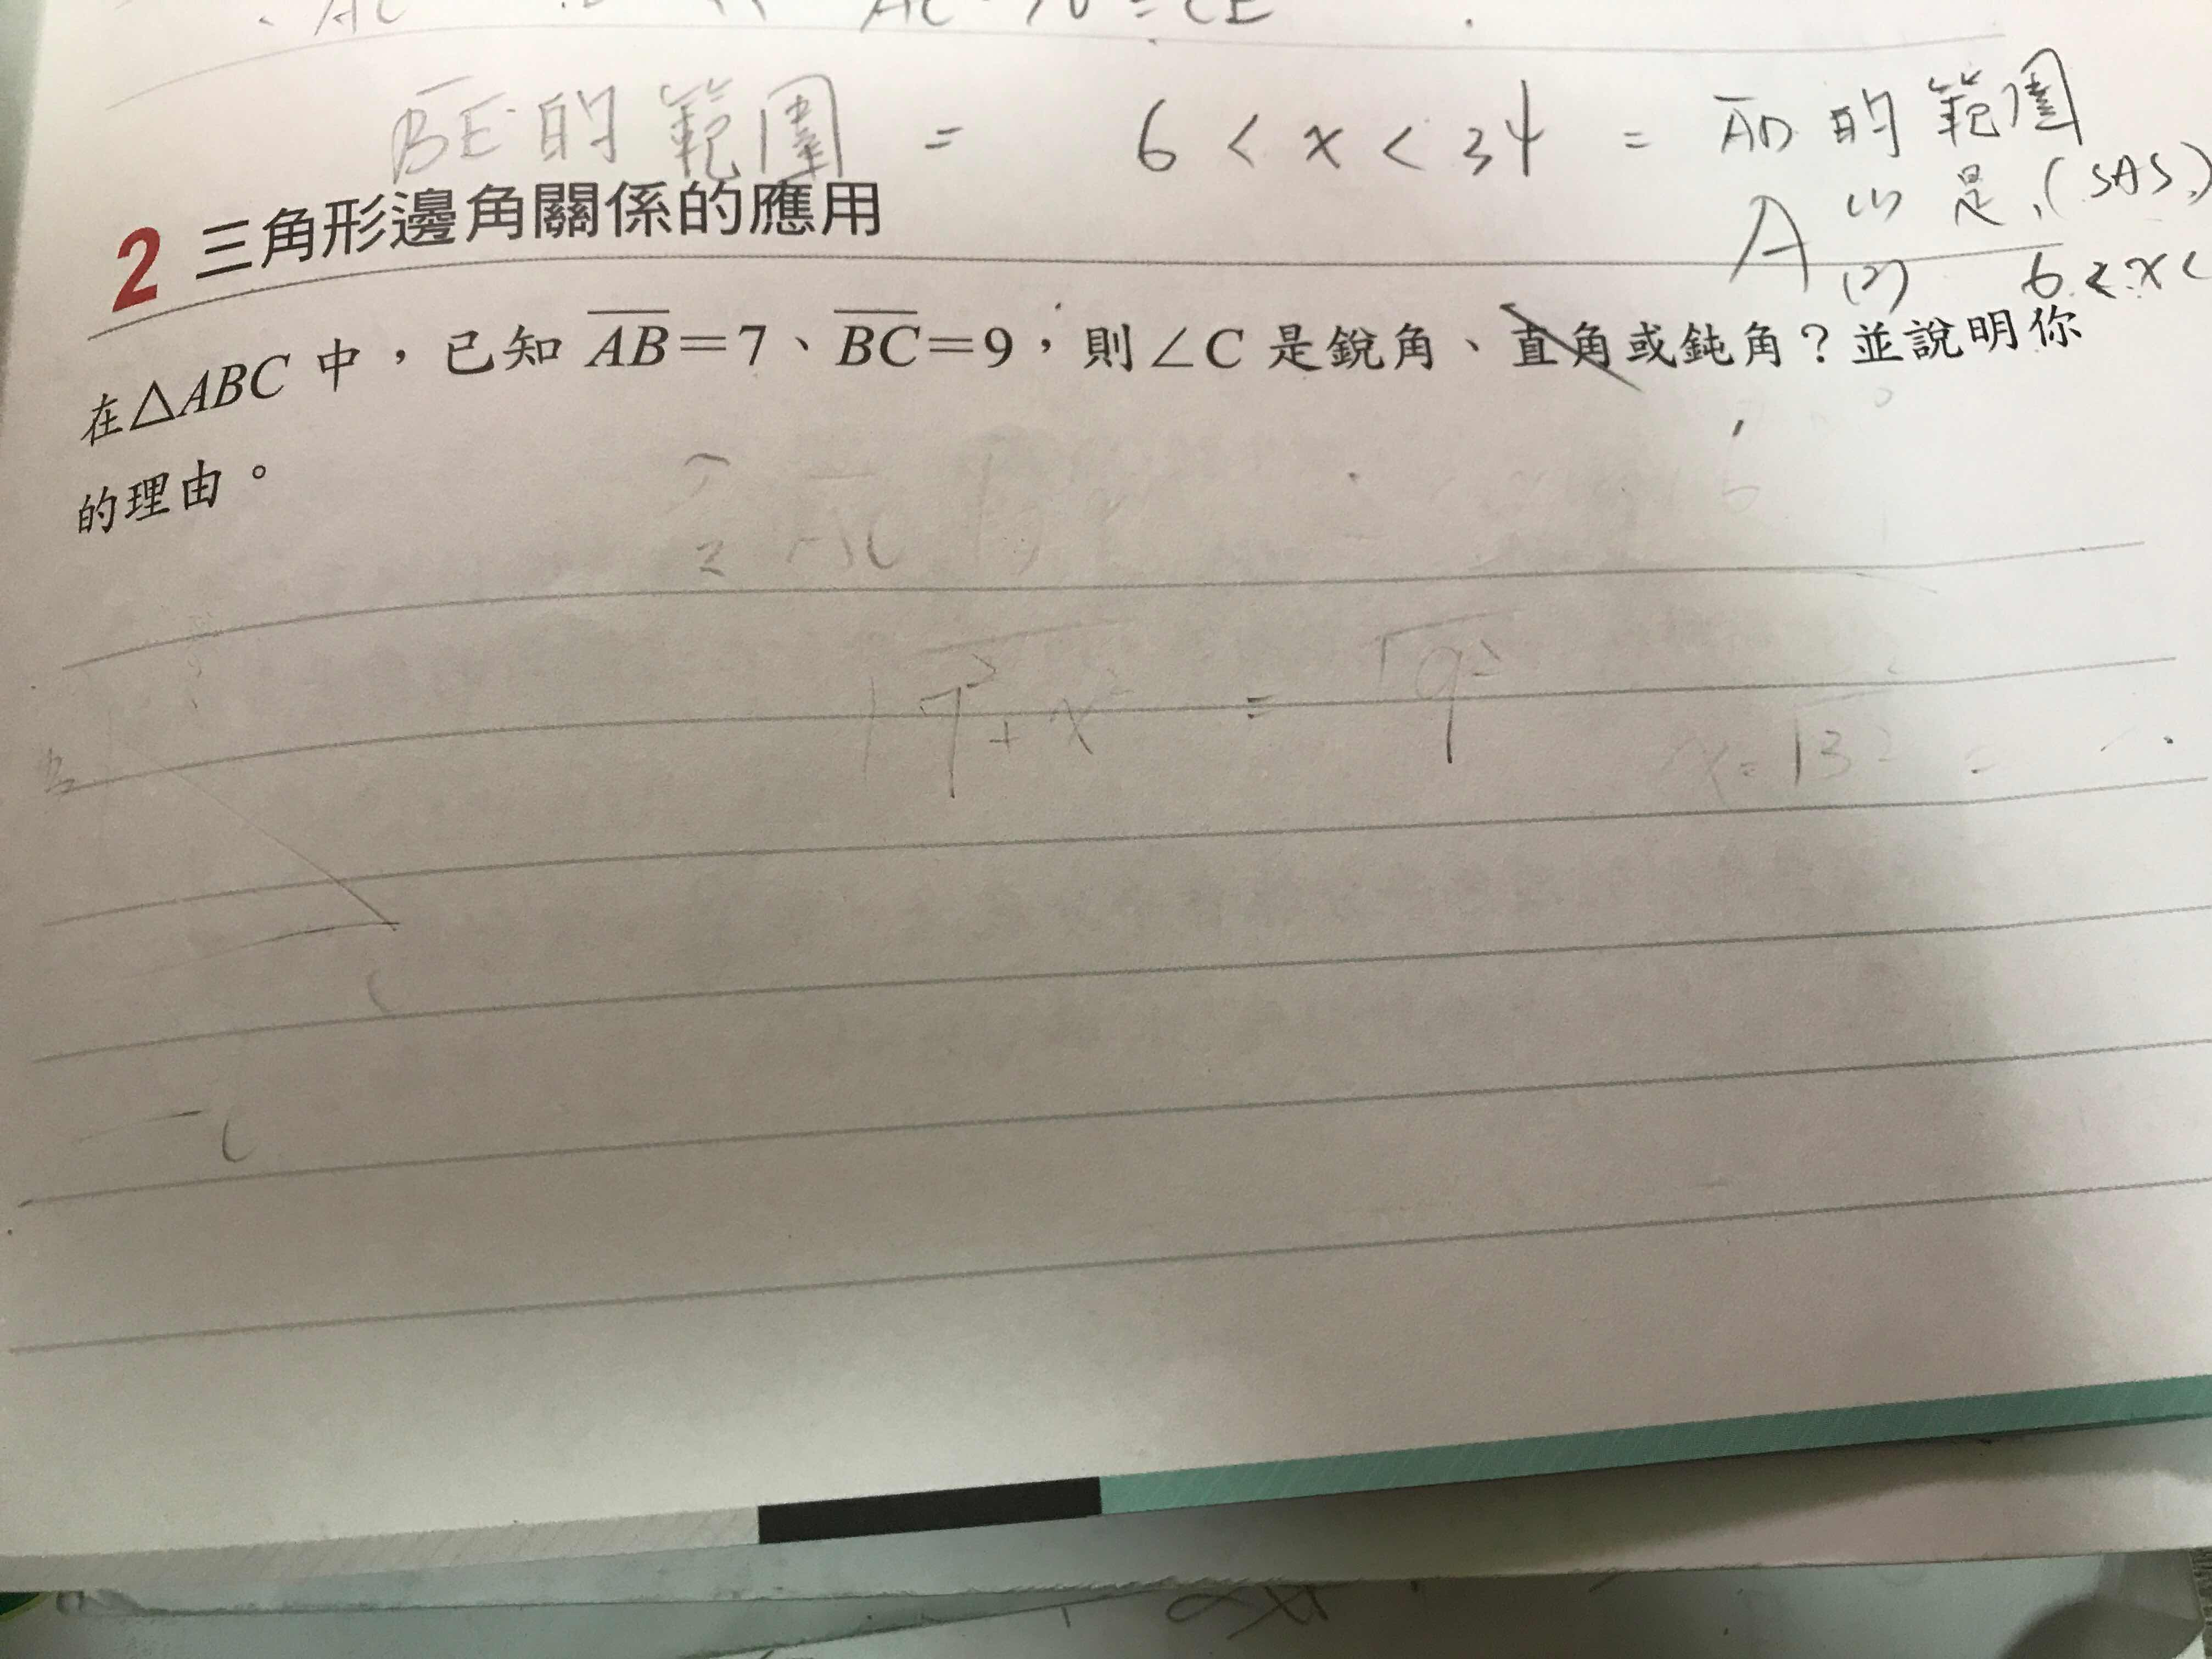 AC = CE
BE的範圍 = 6 < x < 34 = AD 的範圍
A (1) 是 (SAS)
(2) 6 < x <
2 三角形邊角關係的應用
在△ABC 中，已知 AB=7、BC=9，則∠C 是銳角、直角或鈍角？並說明你
的理由。
7² + x² = 9²
x = √32 =
C